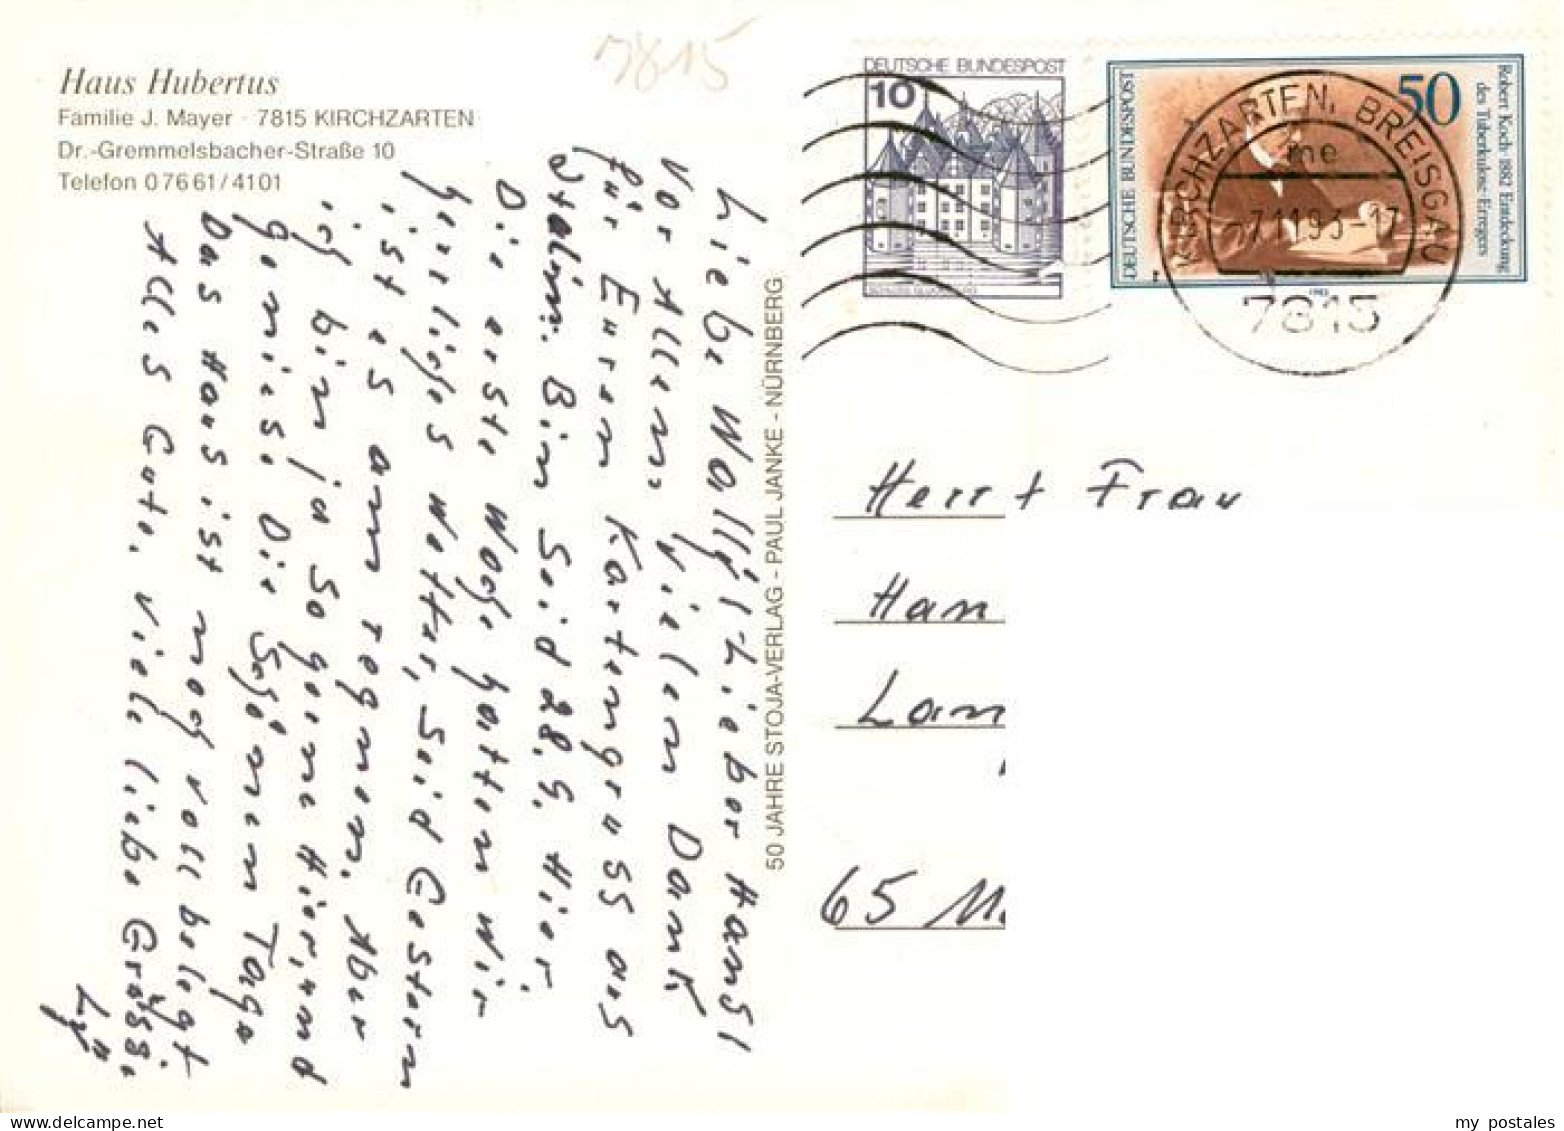 7815
Haus Hubertus
Familie J. Mayer · 7815 KIRCHZARTEN
Dr.-Gremmelsbacher-Straße 10
Telefon 07661/4101
Liebe Wallÿ! Lieber Hansl
Vor Allem, vielen Dank
für Euren Kartengruss aus
Bin Seid 28.9. Hier.
Die erste Woche hatten wir
herrliches Wetter, Seid Gestern
ist es am regnen. Aber
ich bin ja so gerne Hier, und
geniese Die Schönen Tage
Das Haus ist noch voll belegt
Alles Gute, viele liebe Grüsse,
50 JAHRE STOJA-VERLAG - PAUL JANKE - NÜRNBERG
DEUTSCHE BUNDESPOST
10
DEUTSCHE BUNDESPOST
50
Robert Koch · 1882 Entdeckung
des Tuberkulose-Erregers
1982
KIRCHZARTEN, BREISGAU
me
-7.11.93-17
7815
Herr + Frau
Han
Lan
65 M
my postales